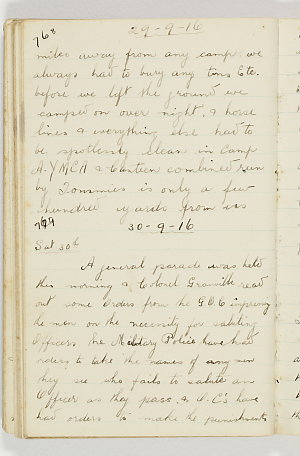 768
29-9-16
miles away from any camp. we
always had to bury any tins Etc.
before we left the ground we
camped on over night, & horse
lines & everything else had to
be spotlessly clean in Camp
A. YMCA & Canteen combined run
by Tommies is only a few
hundred yards from us
769
30-9-16
Sat 30th
A general parade was held
this morning & Colonel Granville read
out some orders from the G.O.C impressing
the men on the necessity for saluting
Officers. the Military Police have had
orders to take the names of any men
they see who fails to salute an
Officer as they pass, & O.C's have
had orders to make the punishments